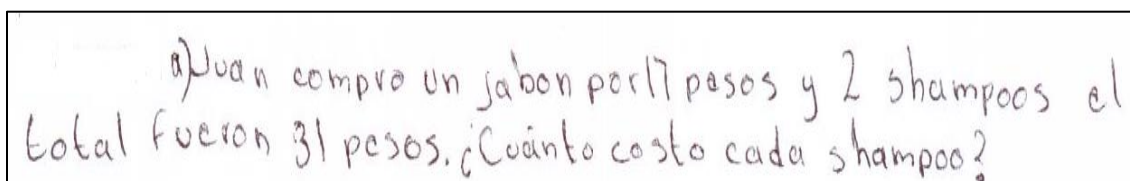 a) Juan compro un jabon por 17 pesos y 2 shampoos el
total fueron 31 pesos. ¿Cuánto costo cada shampoo?